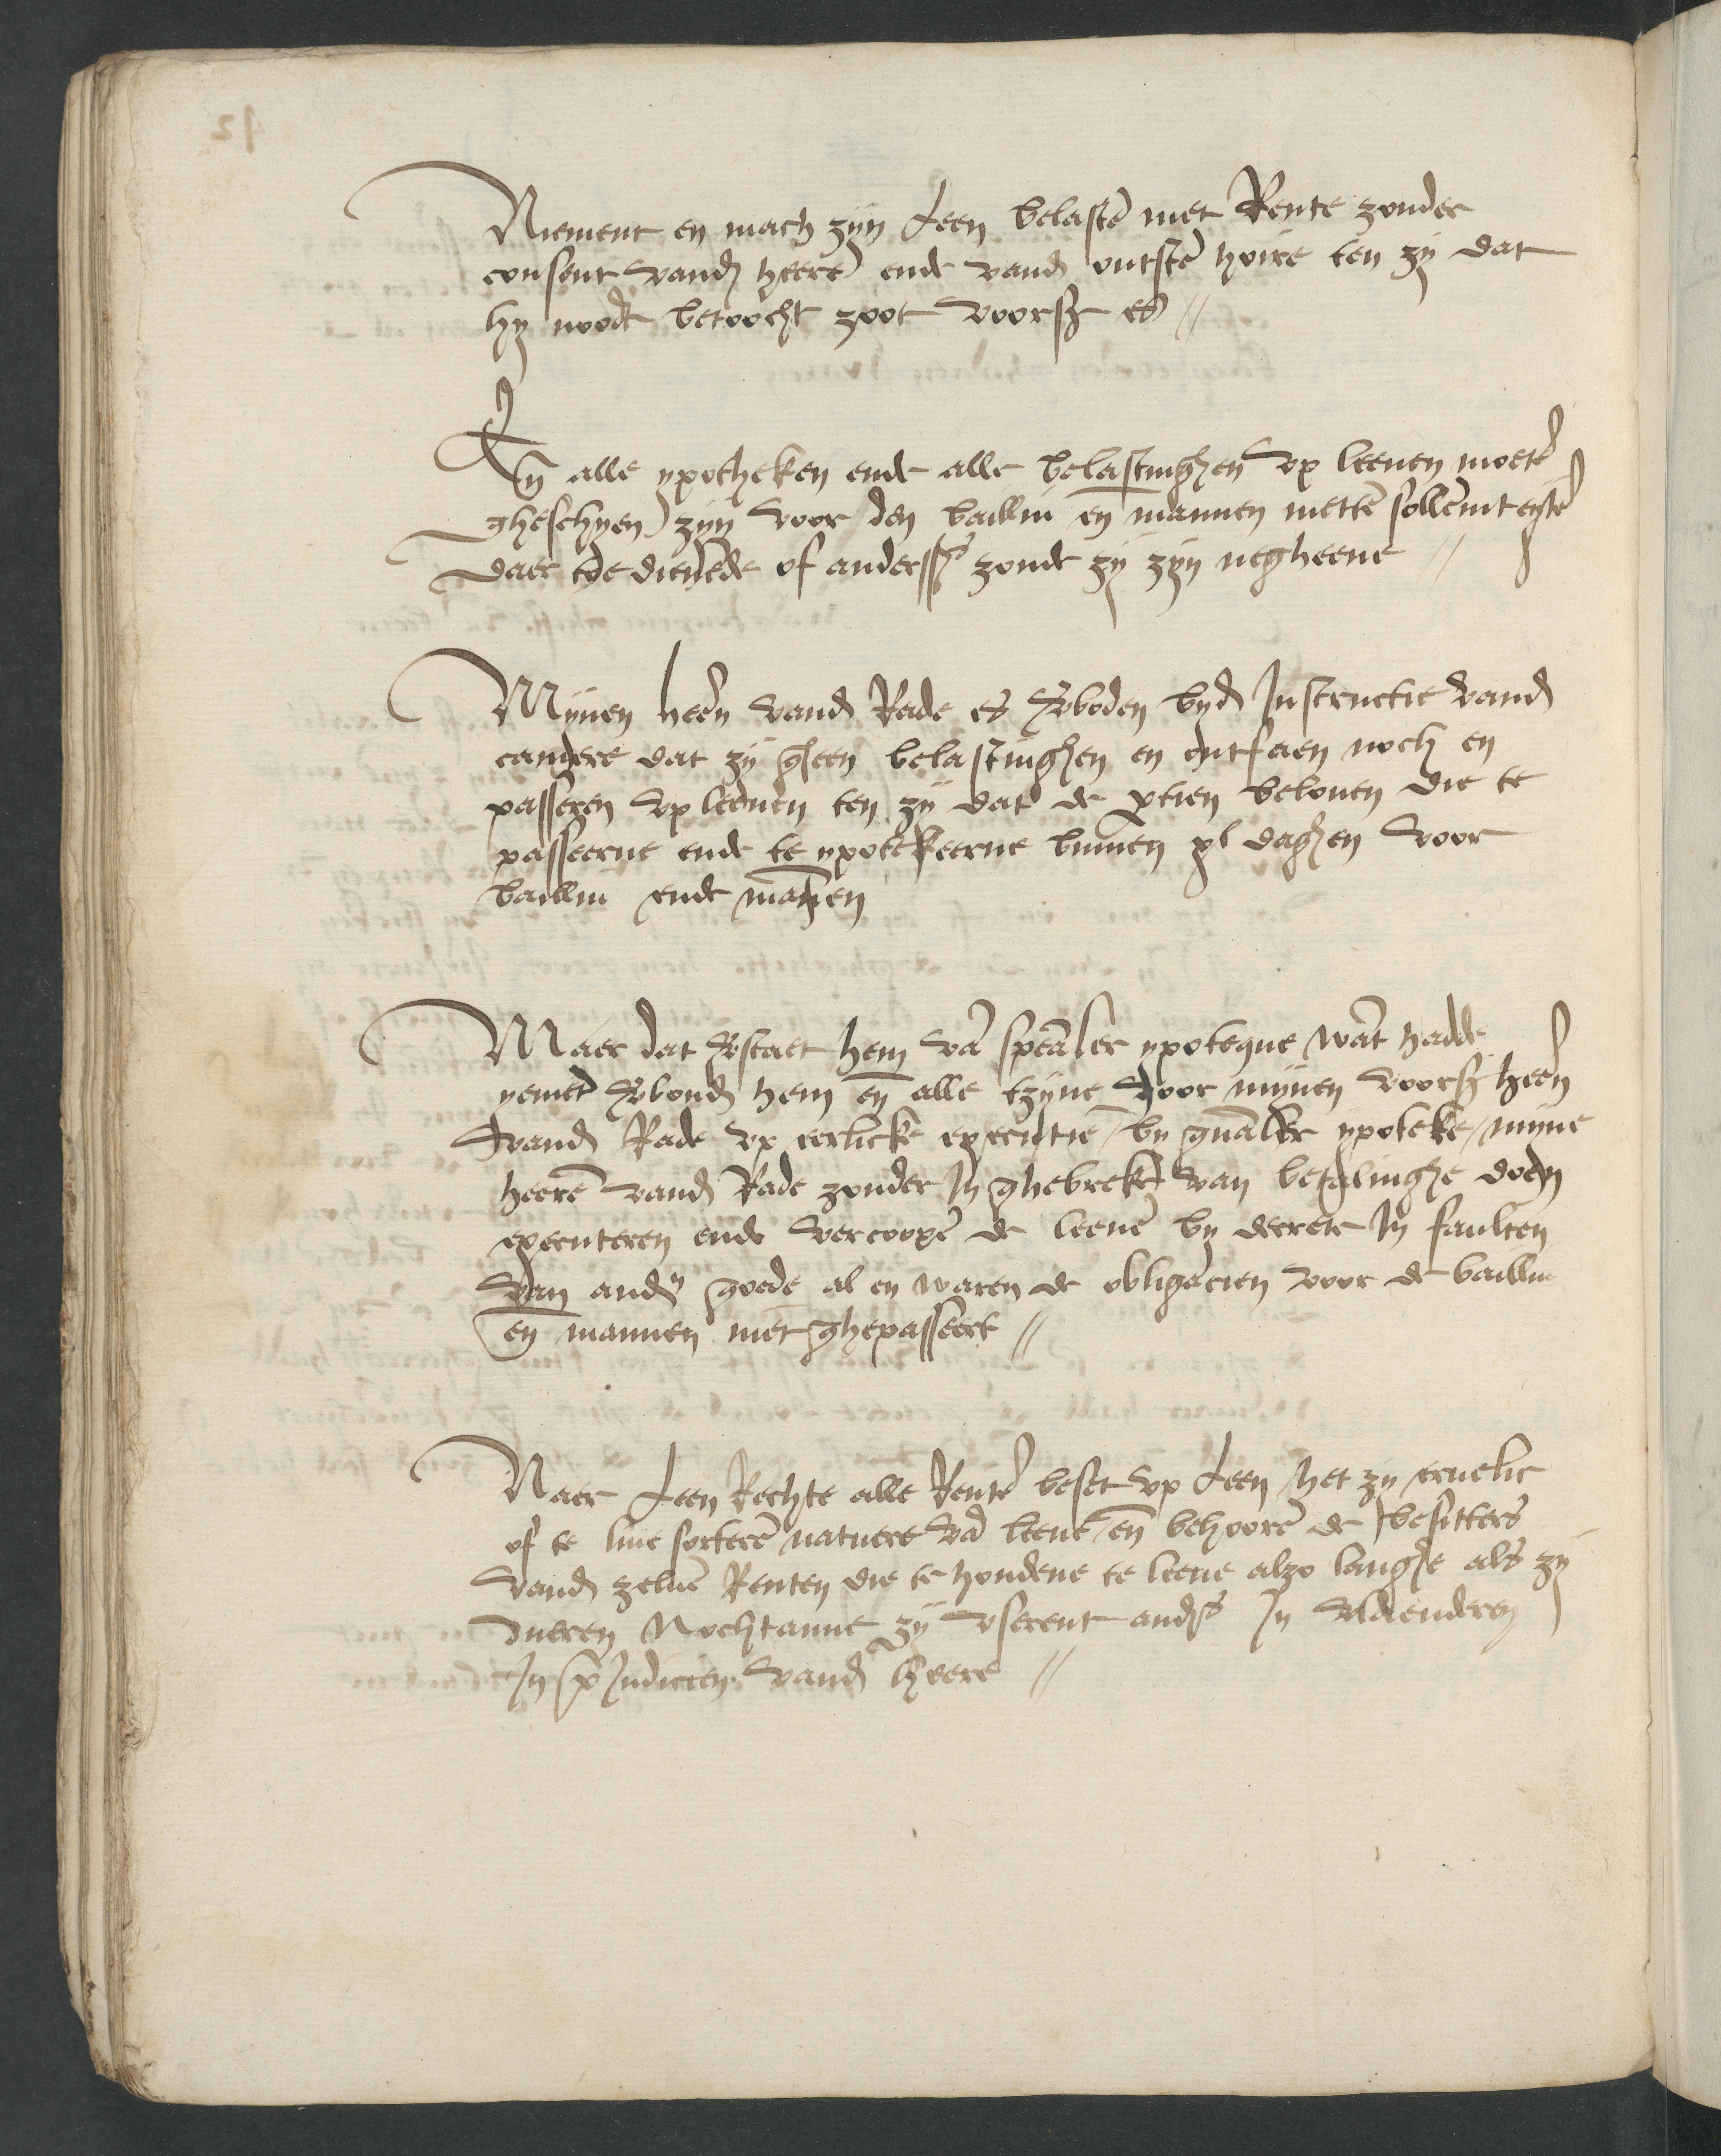 Niement en mach zijn Leen belastē met Rente zonder
consent vandē heerē ende vandē outstē hoire ten zij dat
hij noodt betoocht zoot voorsz es //
En̄ alle ypotheken ende alle belastinghen up leenen moetē
gheschyen zijn voor den bailliu en̄ mannen mettē sollēmteytē
daer toe dienēde of anderssˢ zoude zij zijn negheene //
Mijnen heerē vandē Rade es v̄boden bijdē Instructie vandē
camere dat zij gheen belastinghen en ontfaen noch en
passeren up leenen ten zij dat de ptien beloven die te
passeerne ende te ypotekeerne binnen xl daghen voor
bailliu ende mannen
Maer dat v̄staet hem vā speāler ypoteque wāt hadde
yemēt v̄bondē hem en̄ alle tzijne voor mijnen voorsz heerē
vandē Rade up eerlicke executie bij gn̄aler ypoteke mijne
heerē vandē Rade zouden In ghebreke van betalinghe doen
executeren ende vercoopē de leenē bij decrete In faulten
van andrē goede al en waren de obligacien voor de bailliu
en̄ mannen niet ghepasseert //
Naer Leen Rechte alle Rentē beset up Leen het zij ervelic
of te live sorterē natuere vā leenē en̄ behoorē de besitters
vandē zelvē Renten die te houdene te leene alzo langhe als zij
dueren Nochtanne zij userent anders In vlaenderen
In p̄judicien vandē heere //